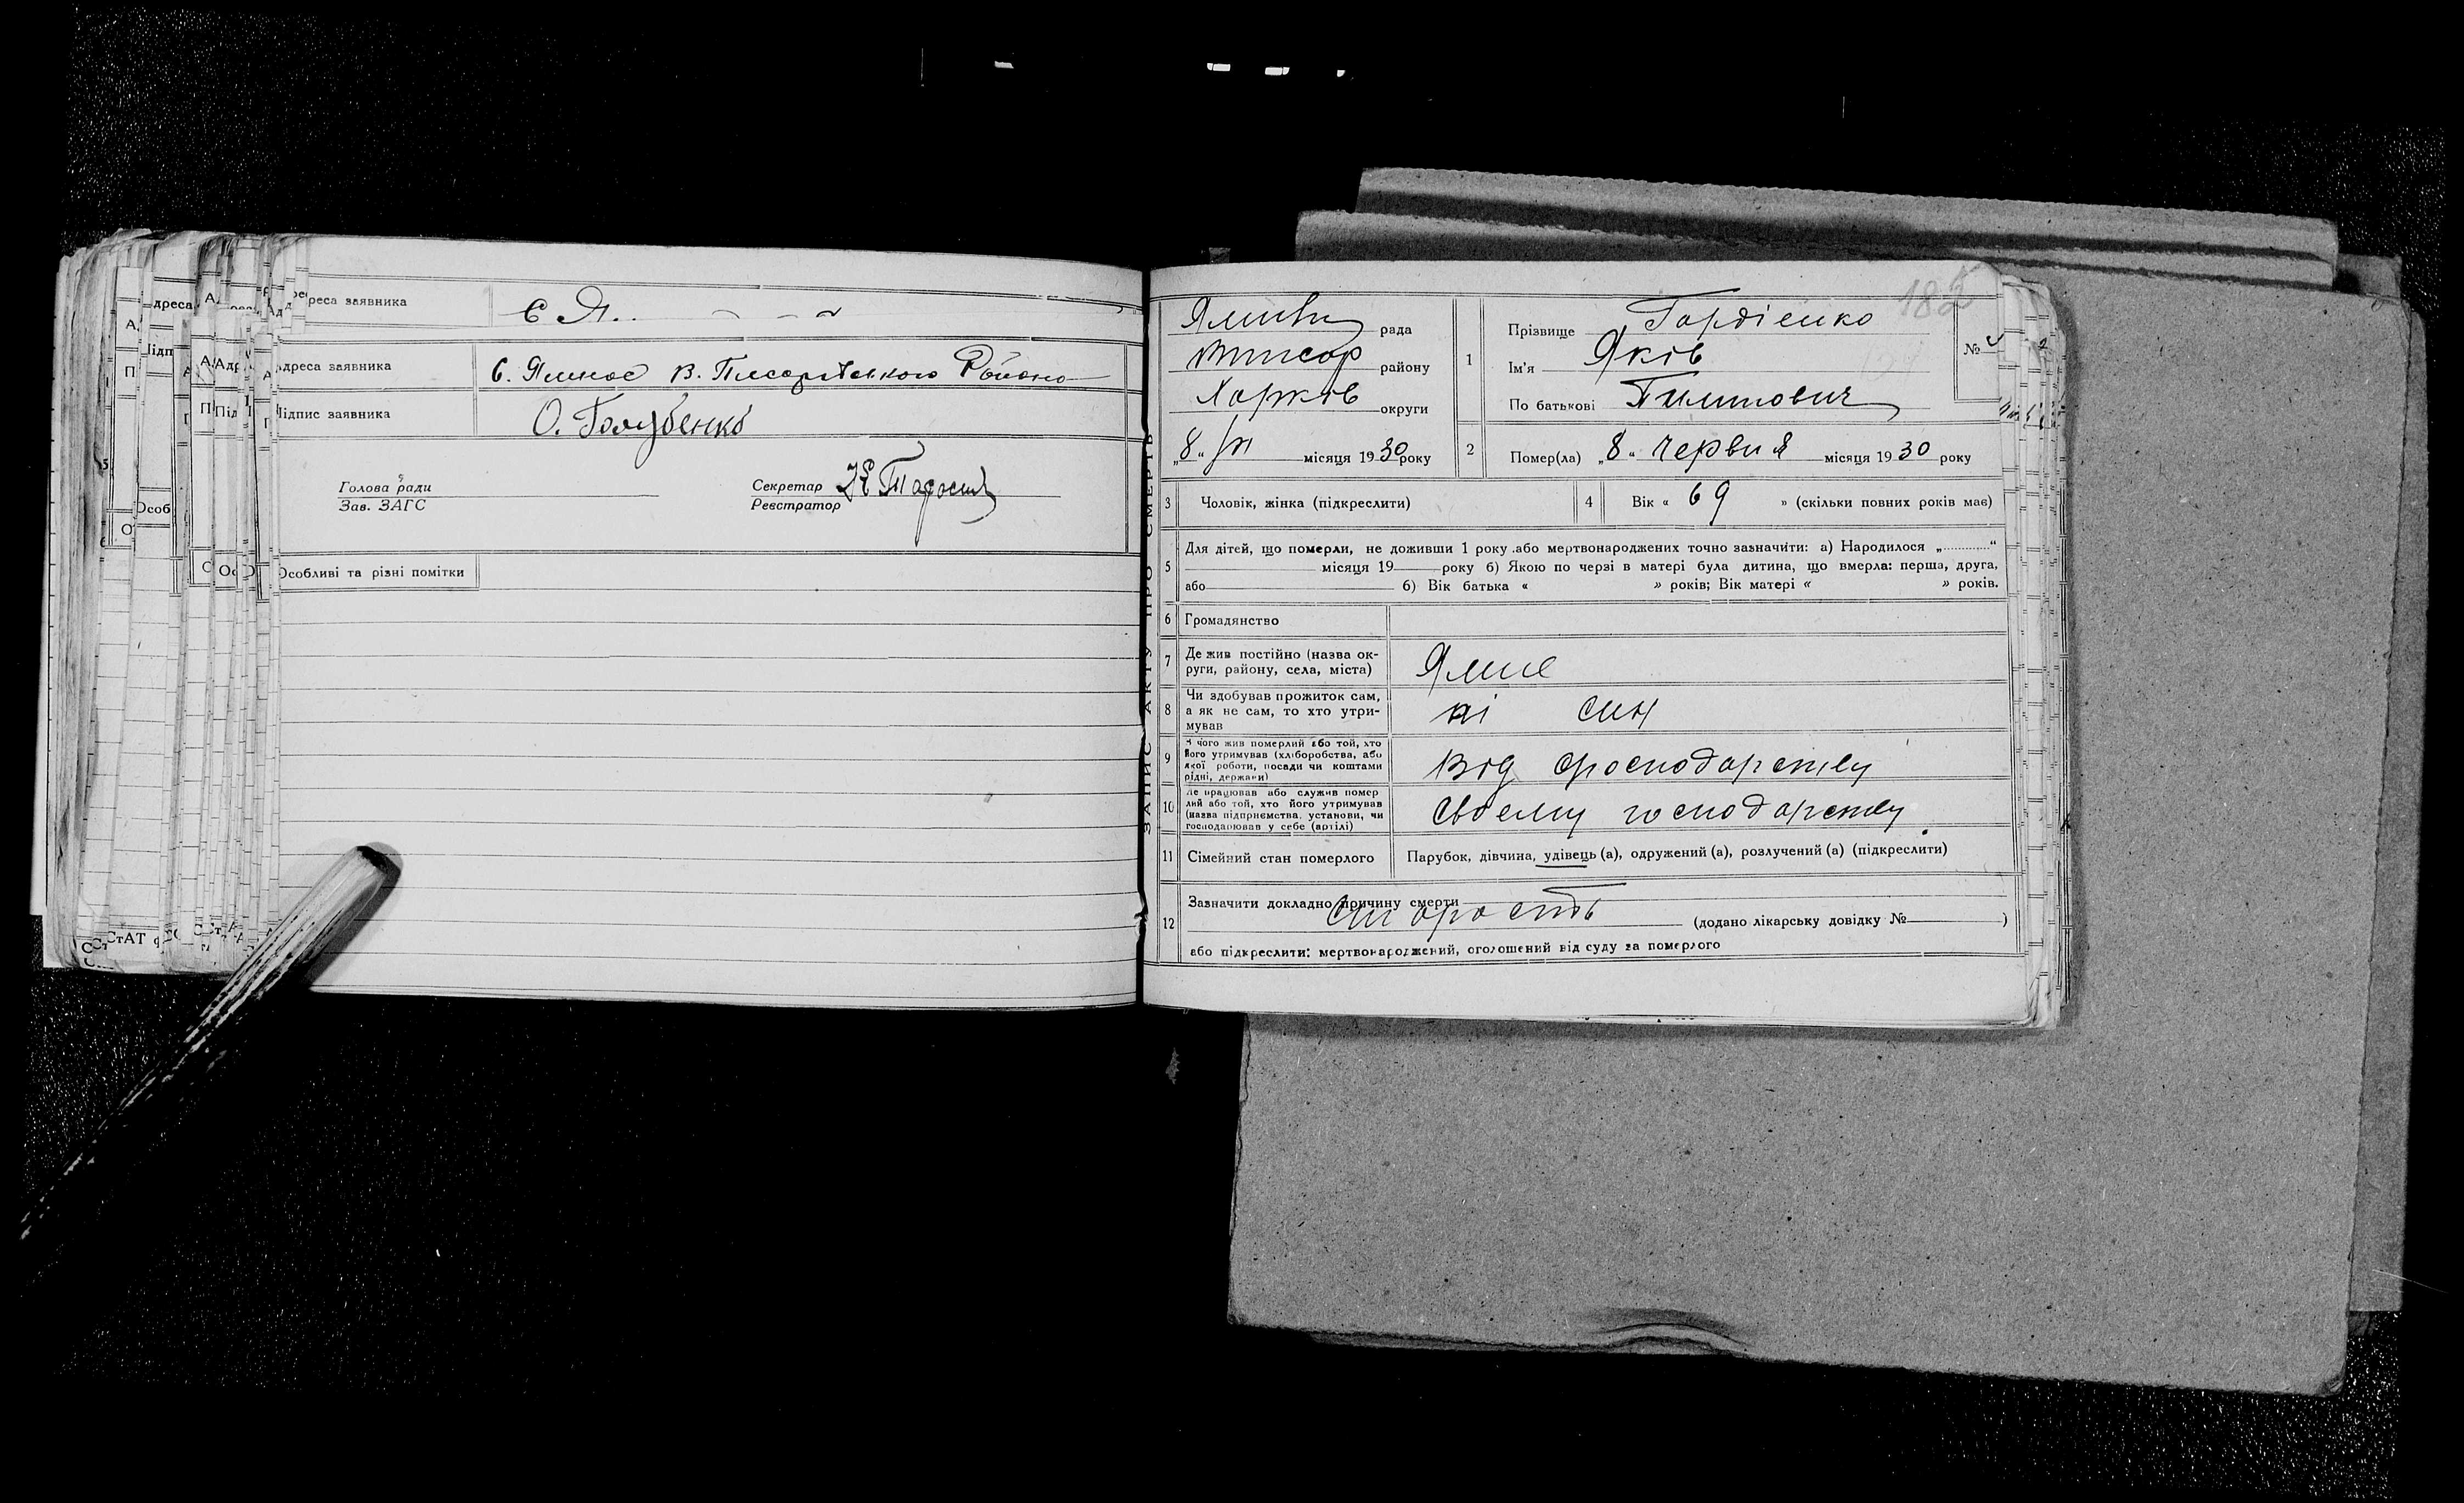 Адреса заявника С Я.
Адреса заявника С. Ямное В. Писарівського Району
Підпис заявника О. Голубенко
Голова ради
Зав. ЗАГС
Секретар
Реєстратор
Особливі та різні помітки
ЗАПИС АКТУ ПРО СМЕРТЬ
182
рада
району
Харків округи
„8“ VI місяця 1930 року
№
1 Прізвище Гордієнко
Ім'я Яків
По батькові
2 Помер(ла) „8“ червня місяця 1930 року
3 Чоловік, жінка (підкреслити)
4 Вік « 69 » (скільки повних років має)
5 Для дітей, що померли, не доживши 1 року або мертвонароджених точно зазначити: а) Народилося „ “
місяця 19 року б) Якою по черзі в матері була дитина, що вмерла: перша, друга,
або б) Вік батька « » років; Вік матері « » років.
6 Громадянство
7 Де жив постійно (назва ок-
руги, району, села, міста) Ямне
8 Чи здобував прожиток сам,
а як не сам, то хто утри-
мував ні син
9 З чого жив померлий або той, хто
його утримував (хліборобства, або
якої роботи, посади чи коштами
рідні, держави) Від господарству
10 Де працював або служив помер
лий або той, хто його утримував
(назва підприємства, установи, чи
господарював у себе (артілі) своєму господарству
11 Сімейний стан померлого Парубок, дівчина, удівець (а), одружений (а), розлучений (а) (підкреслити)
12 Зазначити докладно причину смерти
старость (додано лікарську довідку № )
або підкреслити: мертвонароджений, оголошений від суду за померлого